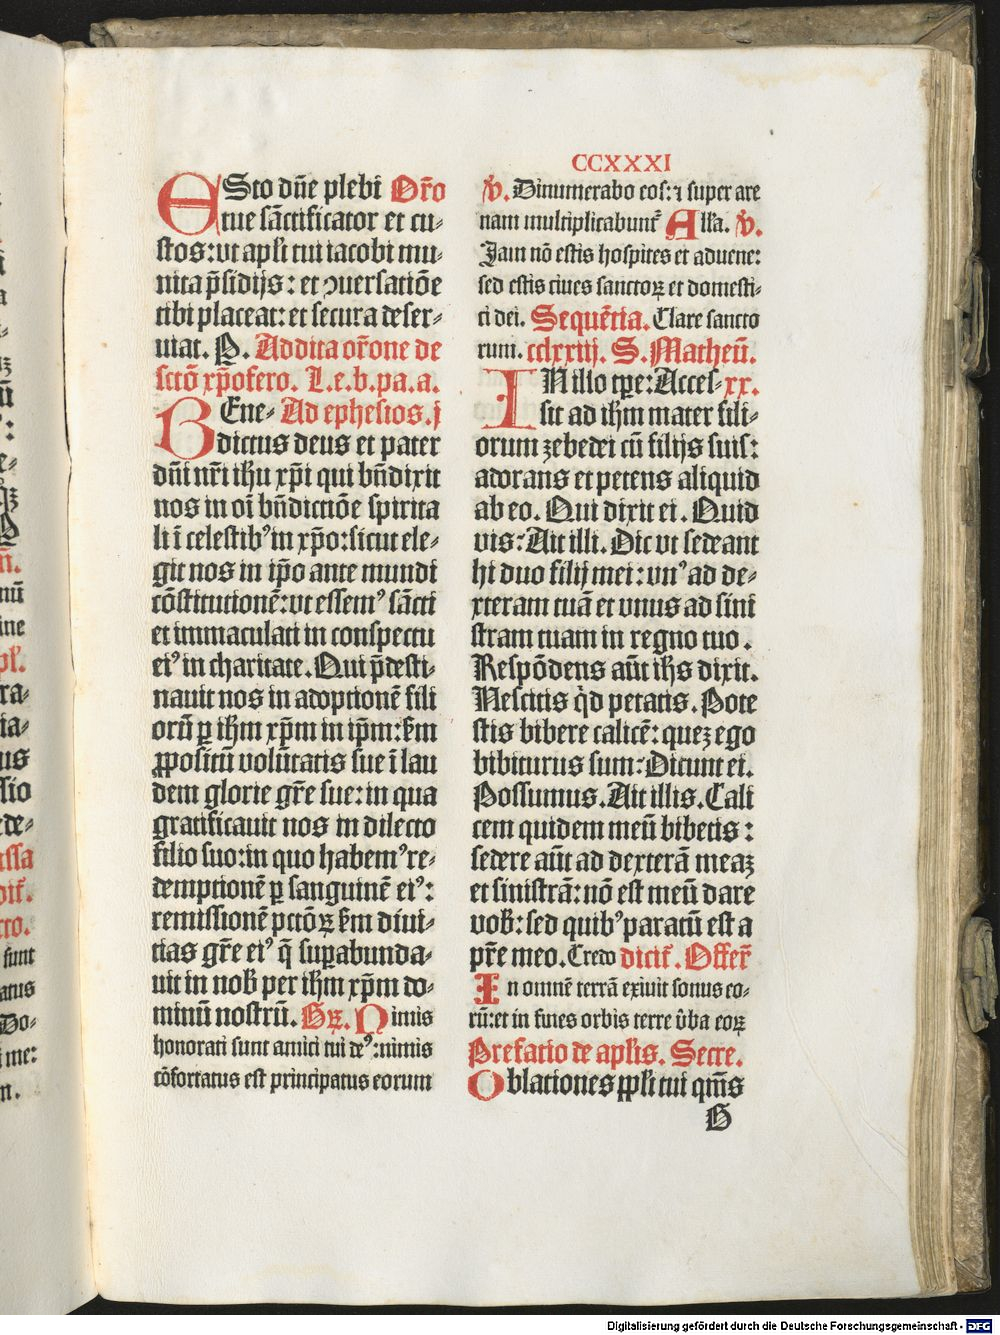 CCXXXI
ESto dn̄e plebi Or̄o
tue sāctificator et cu⸗
stos: ut apl̄i tui iacobi mu⸗
nita p̄sidijs: et ꝯuersatiōe
tibi placeat: et secura deser⸗
uiat. P. Addita or̄one de
sctō xp̄ofero. L.e.b.pa.a.
BEne⸗ Ad ephesios. j
dictus deus et pater
dn̄i nr̄i ih̄u xp̄i qui bn̄dixit
nos in oī bn̄dictiōe spirita
li ī celestibꝰ in xp̄o: sicut ele⸗
git nos in ip̄o ante mundi
cōstitutionē: ut essemꝰ sācti
et immaculati in conspectu
eiꝰ in charitate. Qui p̄desti⸗
nauit nos in adoptionē fili
orū ꝑ ih̄m xp̄m in ip̄m: s̄m
ꝓpositū volūtatis sue ī lau
dem glorie gr̄e sue: in qua
gratificauit nos in dilecto
filio suo: in quo habemꝰ re⸗
demptionē ꝑ sanguinē eiꝰ:
remissionē pctōꝝ s̄m diui⸗
tias gr̄e eiꝰ q̄ suꝑabunda⸗
uit in nob̄ per ih̄m xp̄m do⸗
minū nostrū. Gꝝ. Nimis
honorati sunt amici tui deꝰ: nimis
cōfortatus est principatus eorum
v̄. Dinumerabo eos: ⁊ super are
nam multiplicabunt̄ Alla. v̄.
Jam nō estis hospites et aduene:
sed estis ciues sanctoꝝ et domesti⸗
ci dei. Sequētia. Clare sancto
rum. cclxxiij. S. Matheū.
IN illo tꝑe: Acces⸗ xx.
sit ad ih̄m mater fili⸗
orum zebedei cū filijs suis:
adorans et petens aliquid
ab eo. Qui dixit ei. Quid
vis: Ait illi. Dic vt sedeant
hi duo filij mei: vnꝰ ad de⸗
xteram tuā et vnus ad sini
stram tuam in regno tuo.
Respōdens aūt ih̄s dixit.
Nescitis q̇d petatis. Pote
stis bibere calicē: quēꝫ ego
bibiturus sum: Dicunt ei.
Possumus. Ait illis. Cali
cem quidem meū bibetis:
sedere aūt ad dexterā meaꝫ
et sinistrā: nō est meū dare
vob̄: sed quibꝰ paratū est a
pr̄e meo. Credo dicit̄. Offer̄
In omnē terrā exiuit sonus eo⸗
rū: et in fines orbis terre v̄ba eoꝝ
Prefatio de apl̄is. Secre.
Oblationes ppl̄i tui qm̄s
G
Digitalisierung gefördert durch die Deutsche Forschungsgemeinschaft - DFG